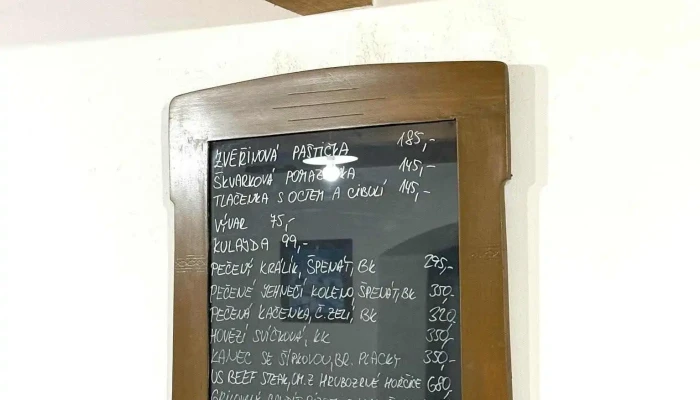 ZVĚŘINOVÁ PAŠTIČKA 185,-
ŠKVARKOVÁ 145,-
TLAČENKA S OCTEM A CIBULÍ 145,-
VÝVAR 75,-
KULAJDA 99,-
PEČENÝ KRÁLÍK, ŠPENÁT, BK 295,-
PEČENÉ JEHNĚČÍ KOLENO ŠPENÁT, BK 350,-
PEČENÁ KAČENKA, Č. ZELÍ, BK 320
HOVĚZÍ SVÍČKOVÁ, KK 350,-
KANEC SE ŠÍPKOVOU, BR. PLACKY 350,-
US BEEF STEAK, OM. Z HRUBOZRNÉ HOŘČICE 680,-